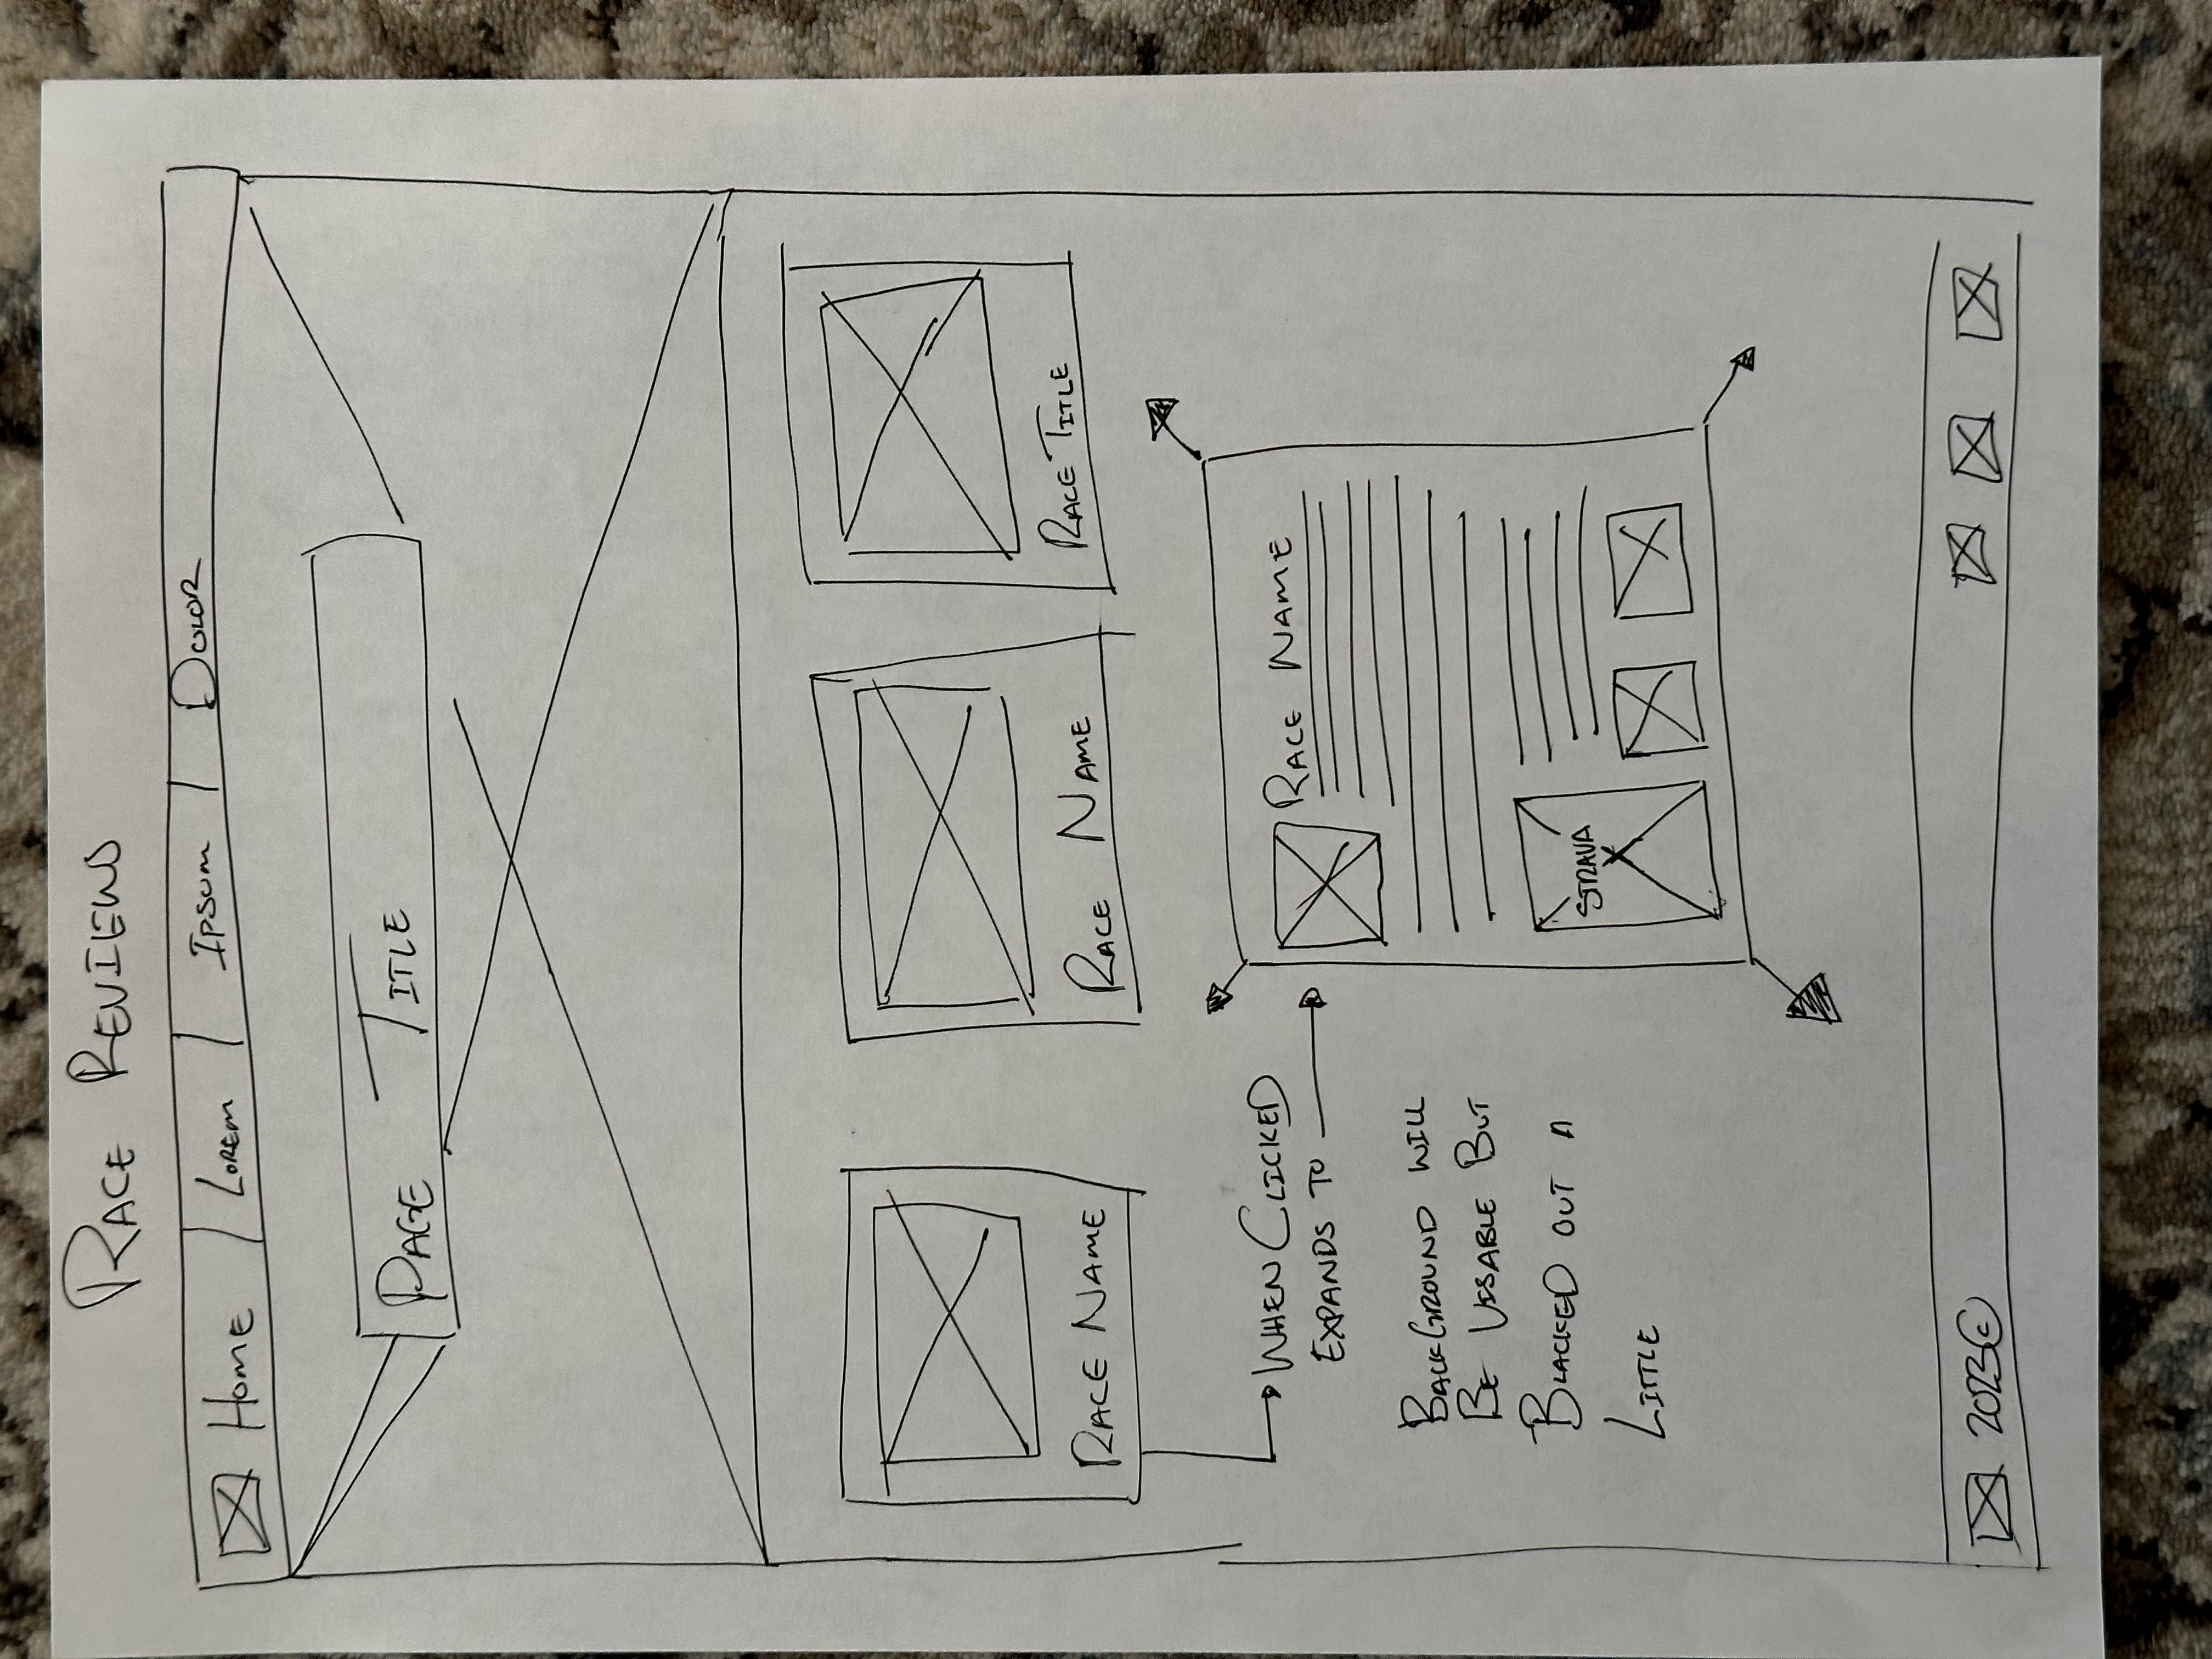 RACE REVIEWS
HOME LOREM IPSUM DOLOR
PAGE TITLE
RACE NAME
RACE NAME
RACE TITLE
WHEN CLICKED
EXPANDS TO
RACE NAME
BACKGROUND WILL
BE VISABLE BUT
BLACKED OUT A
LITTLE
STRAVA
2023©